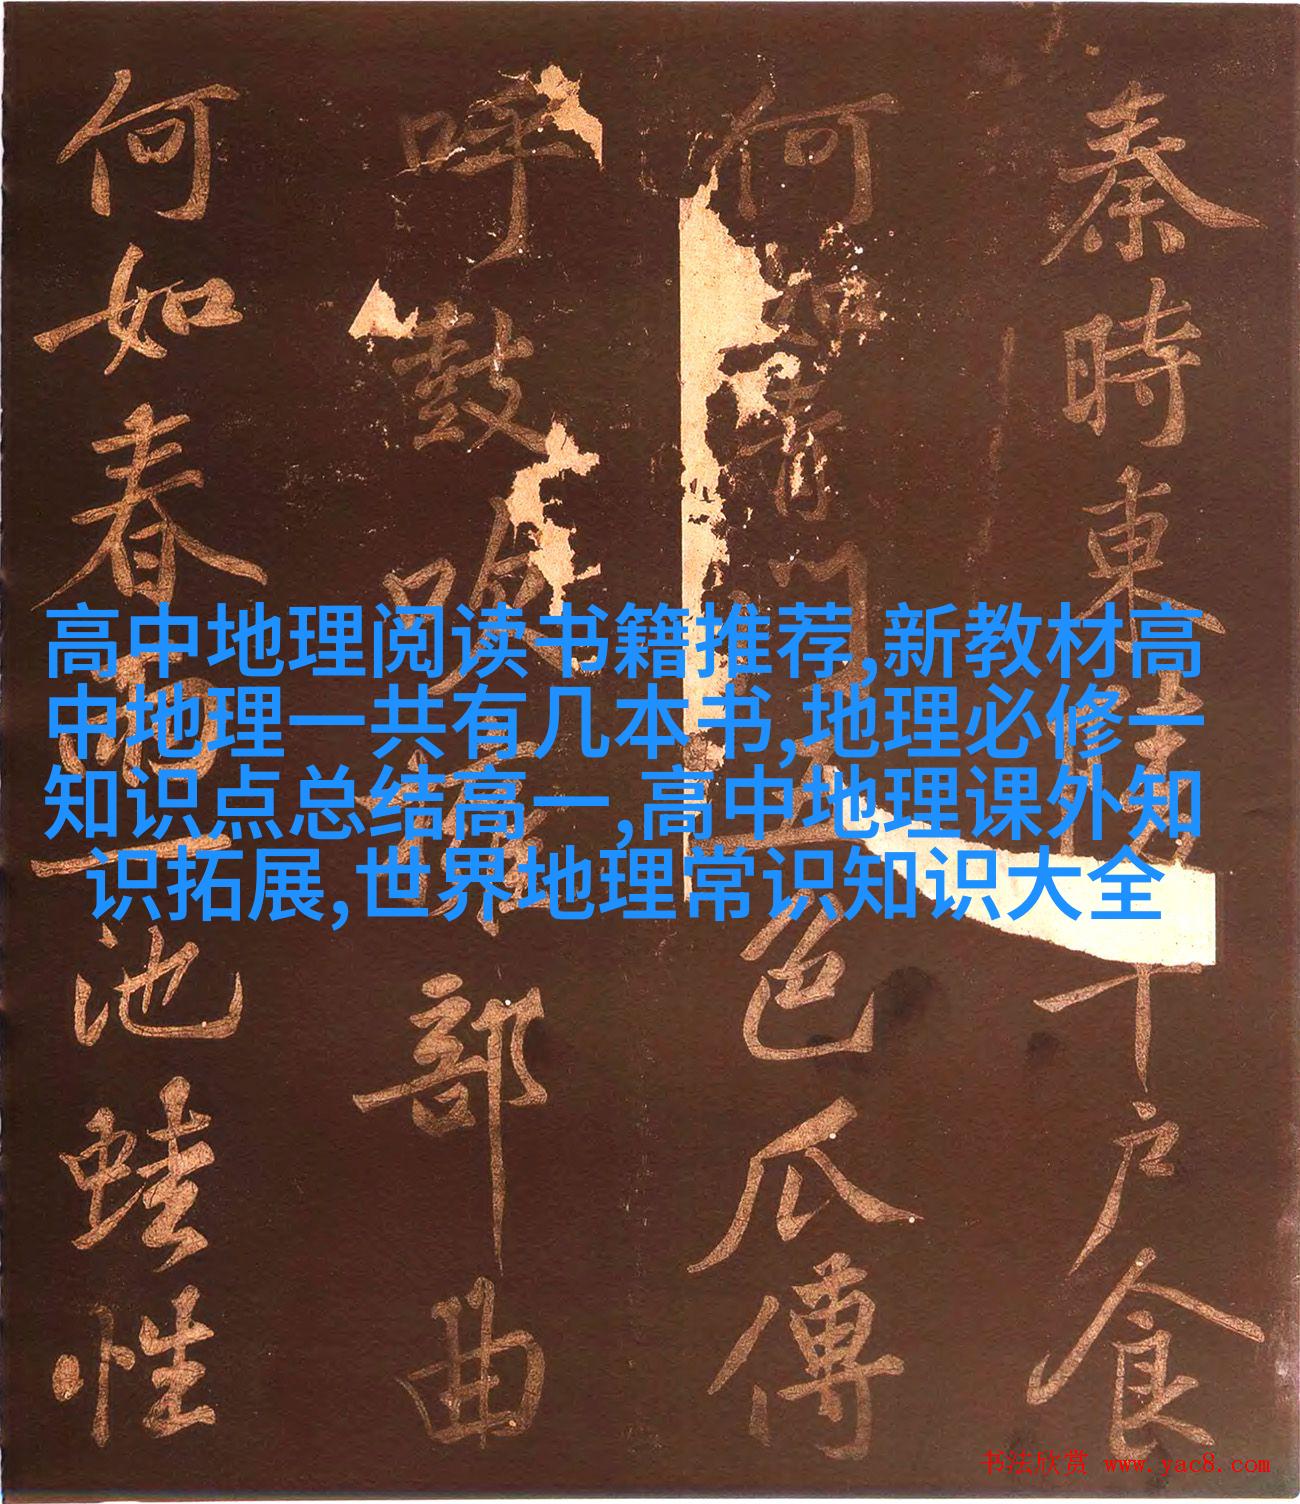 秦時東陵千戶食
何如青門五色瓜傅
呼鼓吹擁部曲
何如春雨一池蛙性
高中地理阅读书籍推荐,新教材高
中地理一共有几本书,地理必修一
知识点总结高一,高中地理课外知
识拓展,世界地理常识知识大全
书法欣赏 www.yac8.com